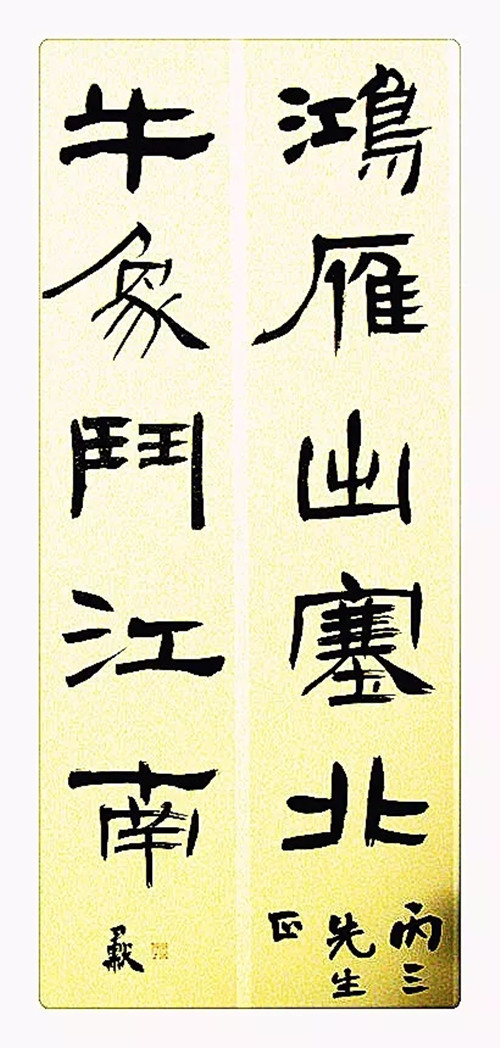 鴻雁出塞北
丙三
先生
正
牛象鬥江南